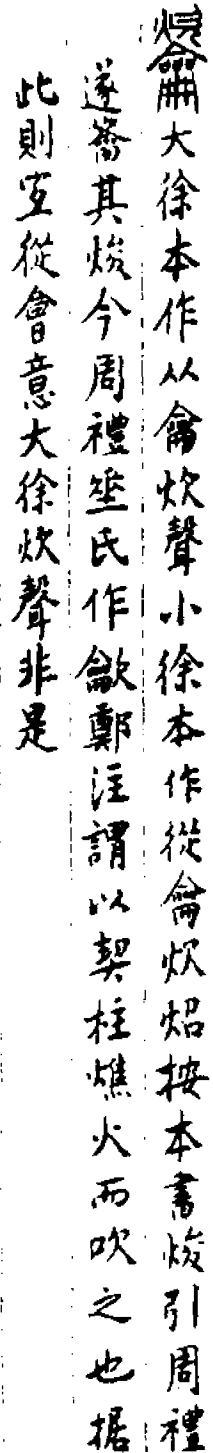 龡大徐本作从龠炊聲小徐本作從龠炊炤按本書焌引周禮
遂籥其焌今周禮垂氏作龡鄭注謂以契柱燋火而吹之也据
此則宜從會意大徐炊聲非是